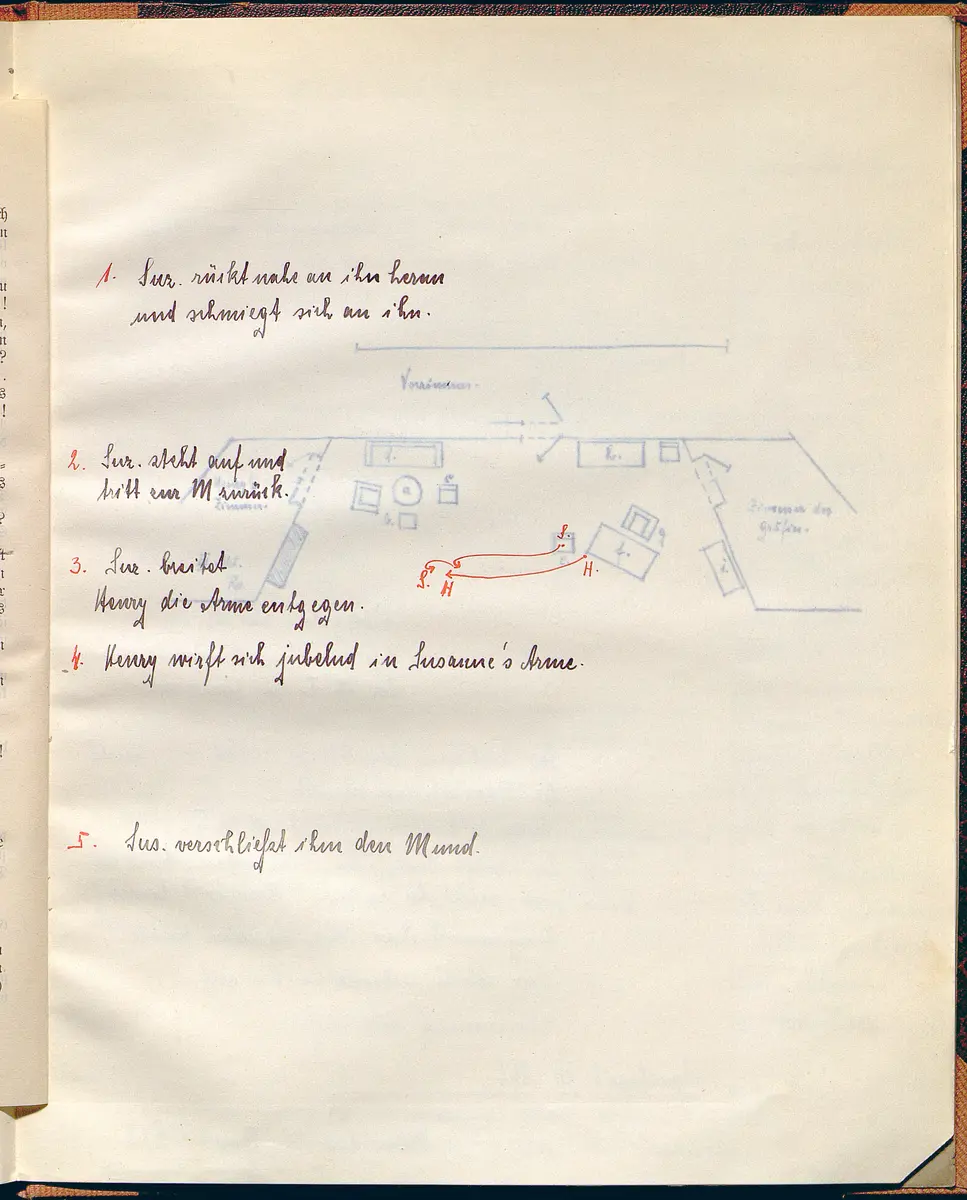 1. Suz. rückt nahe an ihn heran
und schmiegt sich an ihn.
Vorzimmer.
2. Suz. steht auf und
tritt zur M zurück.
Zimmer.
1.
2.
a
Zimmer der
Gräfin.
3. Suz. breitet
Henry die Arme entgegen.
S.
H.
S.
H
4. Henry wirft sich jubelnd in Susanne's Arme.
5. Sus. verschließt ihm den Mund.